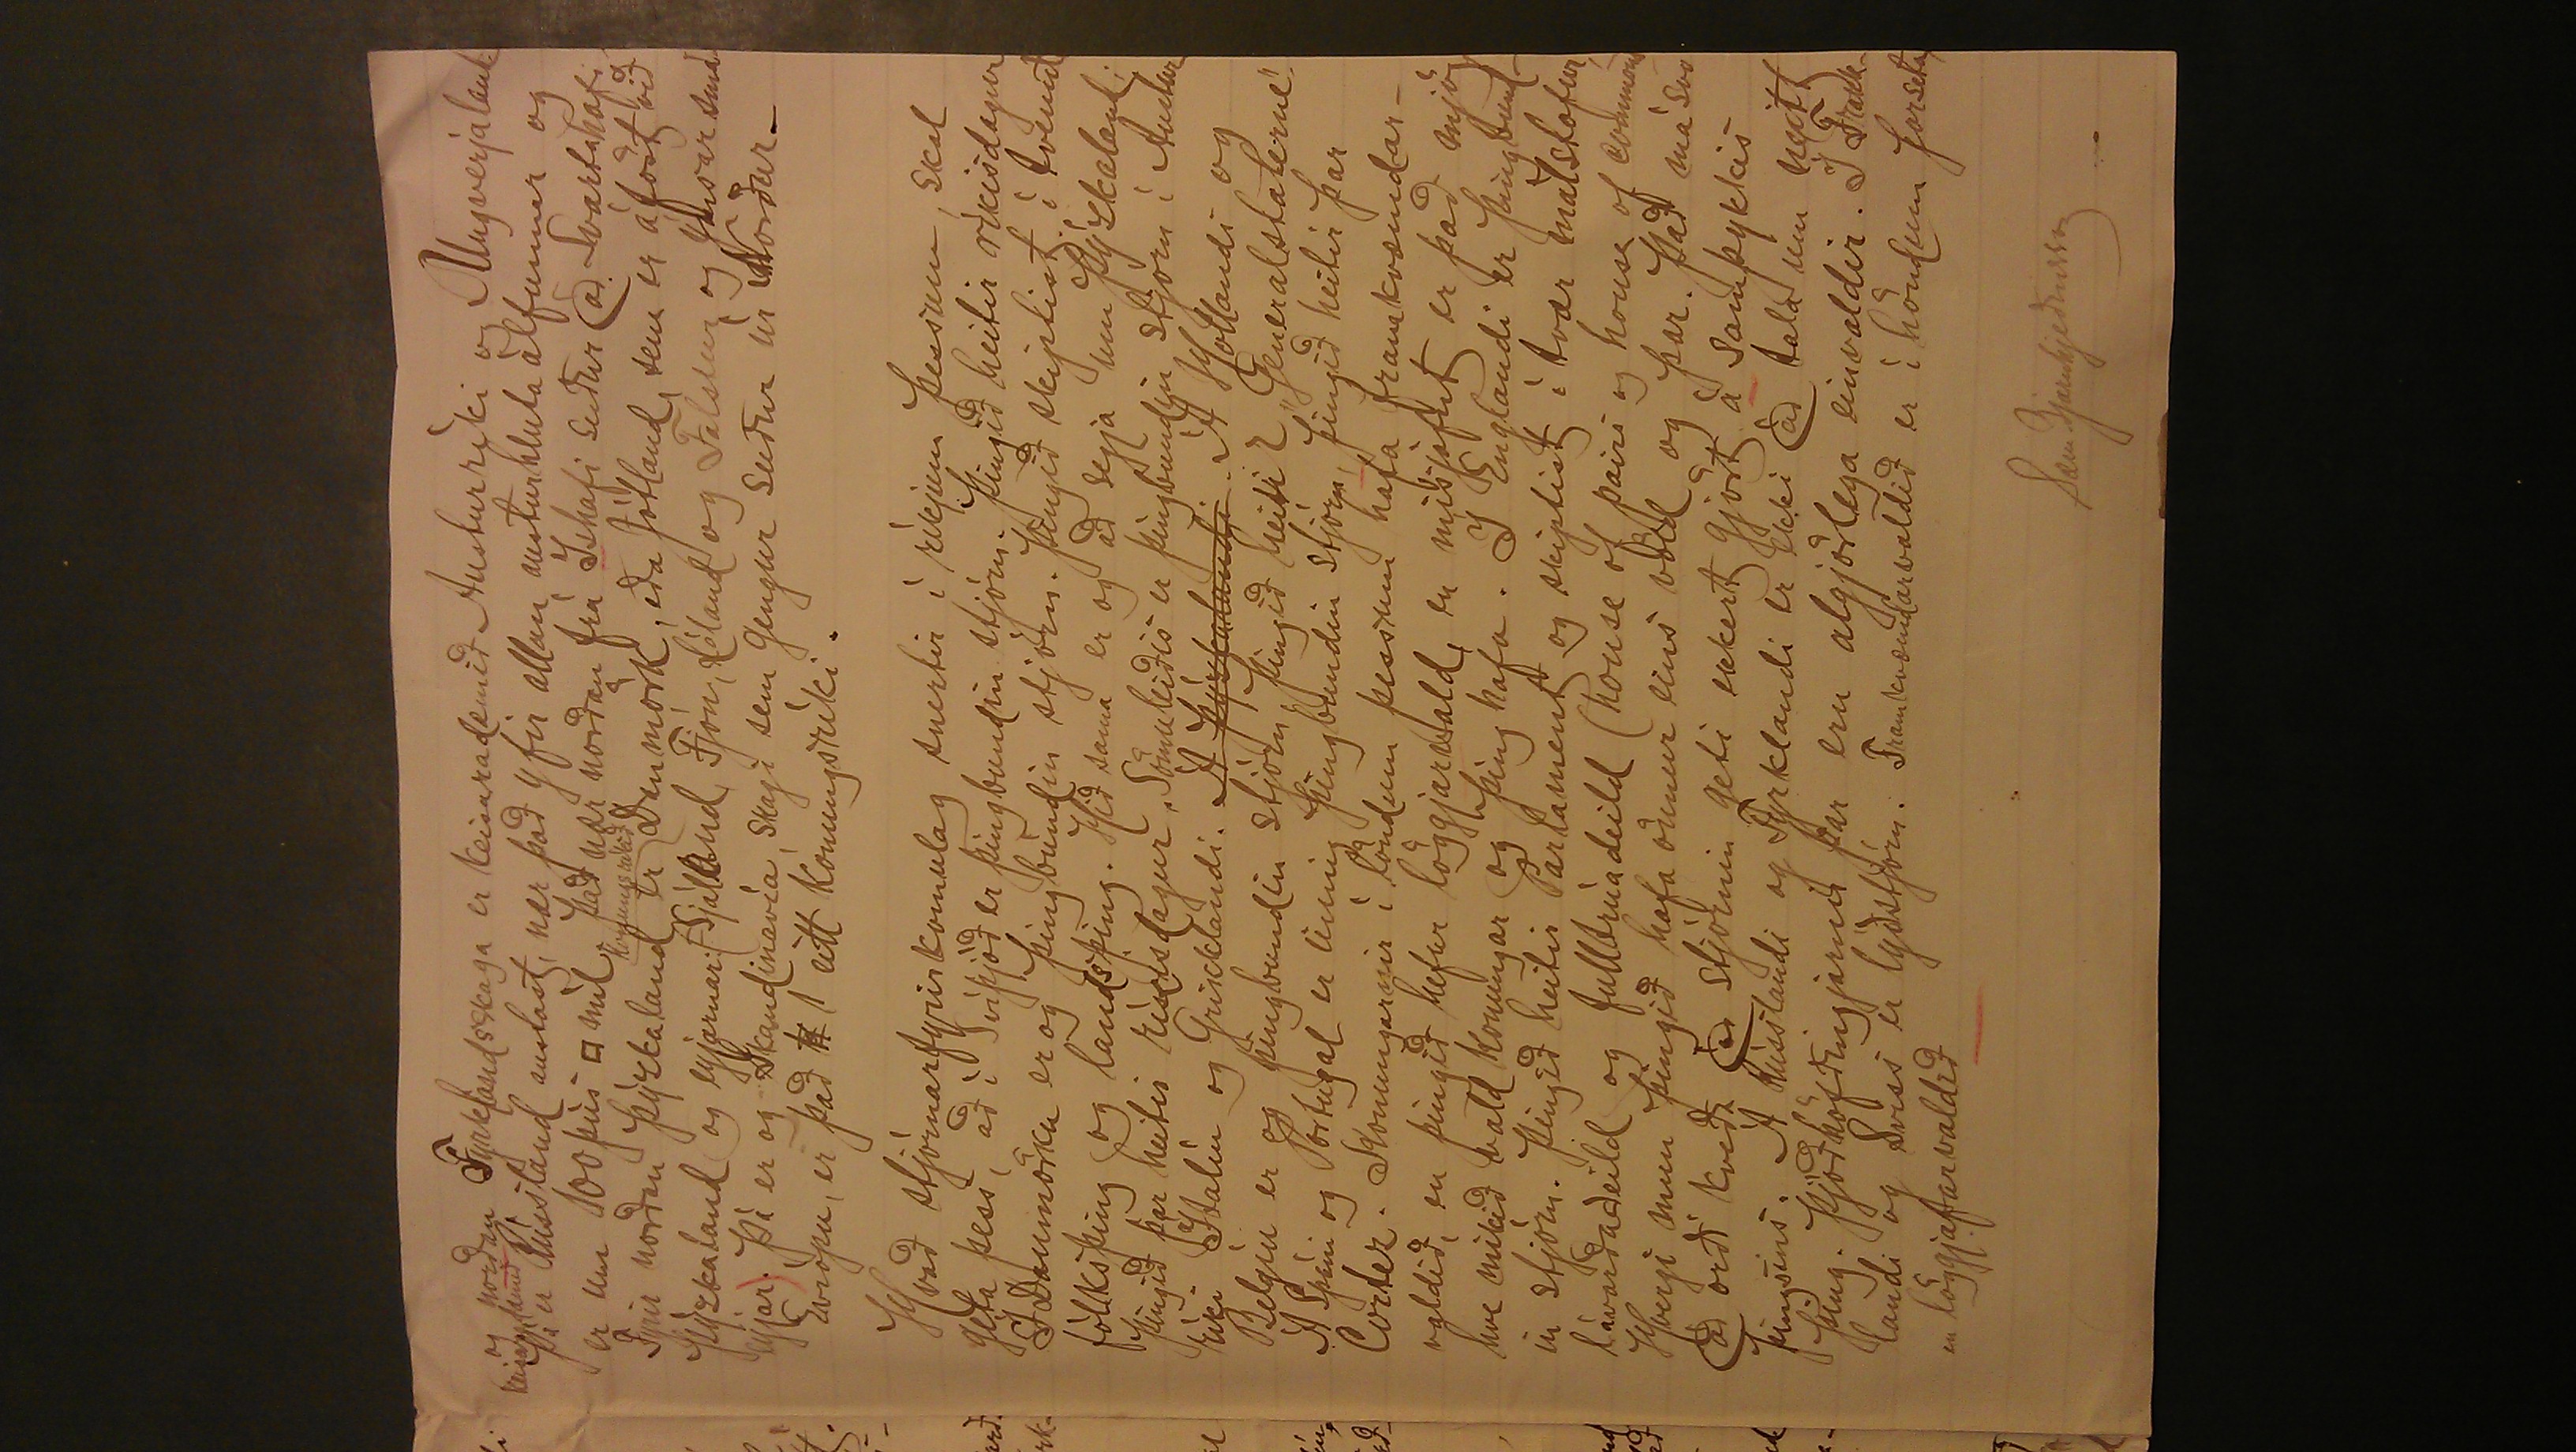 og norðan Tyrklandsskaga er keisaradæmið Austurríki og Ungverjaland
keisaradæmið
Þá er Rússland austast, nær það yfir allan austurhluta álfunnar og
er um 100 þús □ míl. Það nær norðan frá Íshafi suður að Svartahafi
konungsríkið
Fyrir norðan Þýzkaland er Danmörk, eða Jótland, sem er áfast við
Þýzkaland og eyjarnar (Sjáland, Fjón, Láland og Falstur og ýmsar smá
eyjar). Þá er og Skandinavia, skagi sem gengur suður úr Norður-
Evrópu, er það 1 eitt konungsríki.
Hvað stjórnarfyrirkomulag snertir í ríkjum þessum, skal
geta þess, að í Svíþjóð er þingbundin stjórn. Þingið heitir ríkisdagur
Í Danmörku er og þingbundin stjórn. Þingið skiptist í tvennt
fólksþing og landsþing. Hið sama er og að segja um Þýzkaland;
þingið þar heitir ríkisdagur. Sömuleiðis er þingbundin stjórn í Austur
ríki, Ítalíu og Grikklandi. Á Þýskalandi. Á Hollandi og
Belgíu er og þingbundin stjórn þingið heitir "Generalstaterne".
Á Spáni og Portugal er einnig þingbundin stjórn, þingið heitir þar
Cortez. Konungarnir í löndum þessum hafa framkvæmdar-
valdið, en þingið hefur löggjarvald, en misjafnt er það mjög
hve mikið vald konungar og þing hafa. Í Englandi er þingbund-
in stjórn. Þingið heitir Parlament og skiptist í tvær málstofur,
lávarðadeild og fulltrúadeild (house of pairs og house of commons
Hvergi mun þingið hafa önnur eins völd og þar. Það má svo
að orði kveða að stjórnin geti ekkert gjört á samþykkis
þingsins. Á Rússlandi og Tyrklandi er ekki að tala um neitt
þing. Þjóðhöfðingjarnir þar eru algjörlega einvaldir. Í Frakk-
landi og Sviss er lýðstjórn. Framkvæmdarvaldið er í höndum forseta,
en löggjafarvaldið
Sam Bjarnhjeðinsson